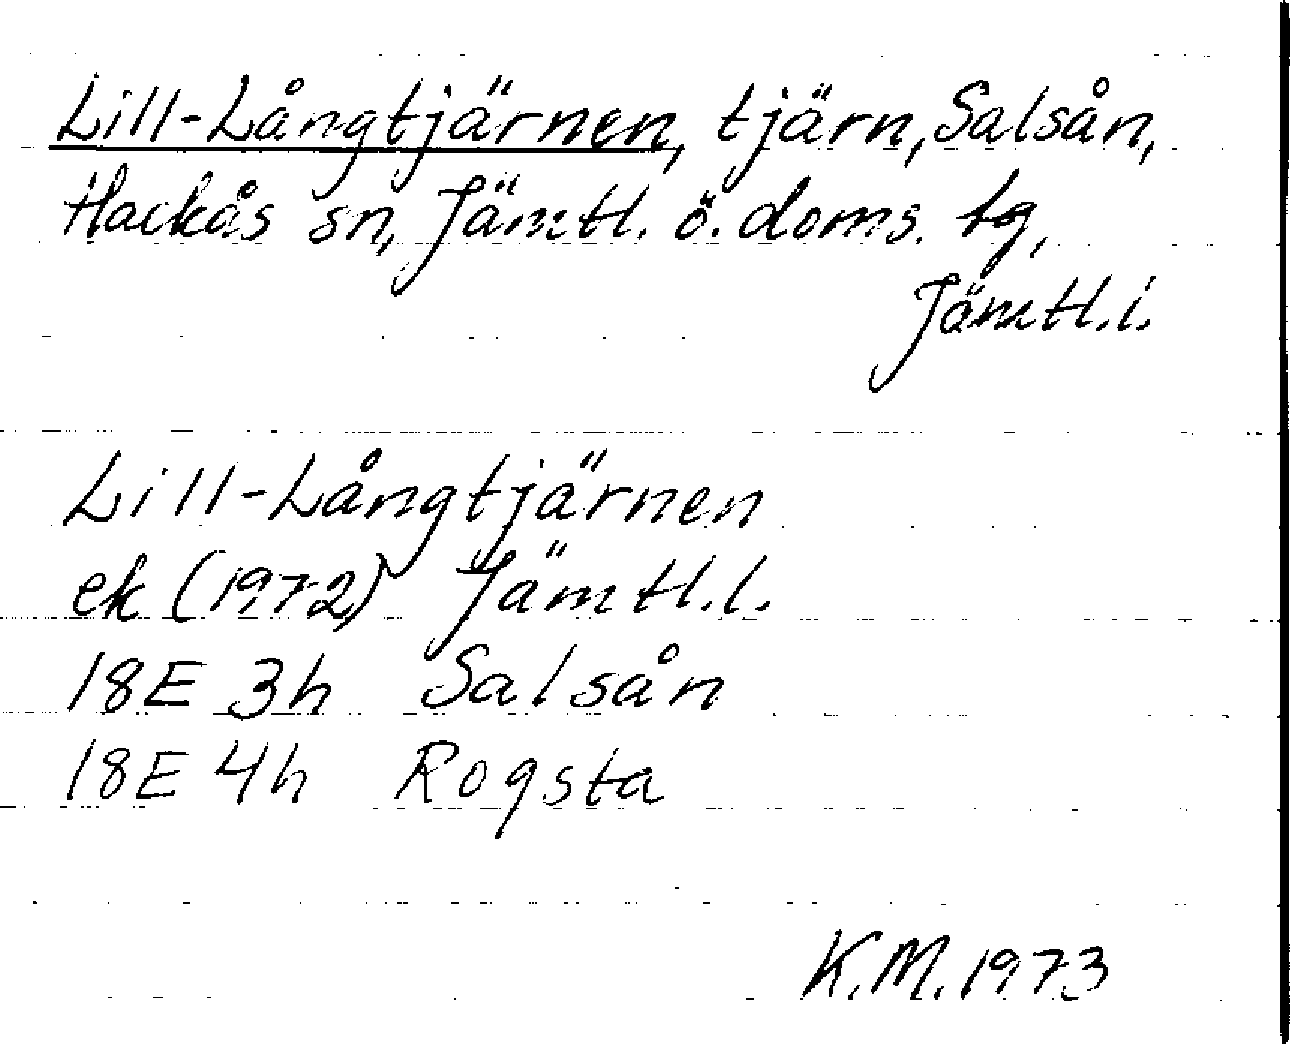 Lill-Långtjärnen, tjärn, Salsån,
Hackås sn, Jämtl. ö. doms. tg,
Jämtl. l.
Lill-Långtjärnen
ek (1972) Jämtl. l.
18E 3h Salsån
18E 4h Rogsta
K.M. 1973